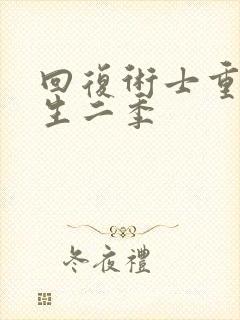 回復術士重
生二季
冬夜禮